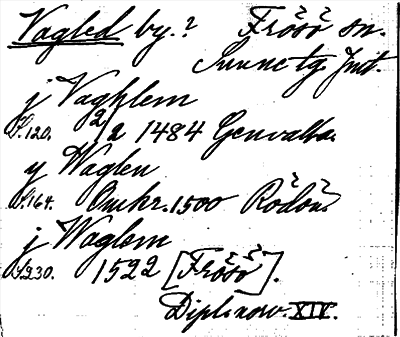 Vagled by.? Frösö sn.
Sunne tg Jmt.
j Vaghlem
S. 120. 2/2 1484 Genvalla.
y Waglen
S. 164. Omkr. 1500 Rödön.
j Waglem
S. 230. 1522 [Frösö].
Dipl. norv. XIV.